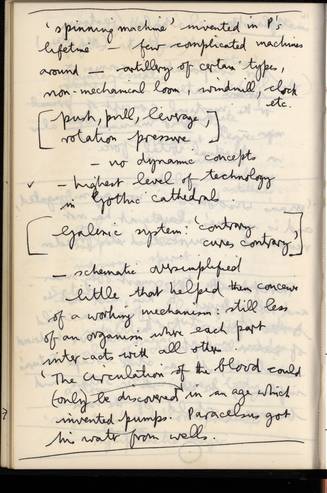 'spinning machine' invented in P's
lifetime – few complicated machines
around – artillery of certain types,
non-mechanical loom, windmill, clock
etc.
[push, pull, leverage,
rotation pressure]
– no dynamic concepts
✓ – highest level of technology
in Gothic cathedral.
[Galenic system: 'contrary
cures contrary,]
– schematic oversimplified
little that helped them conceive
of a working mechanism: still less
of an organism where each part
inter-acts with all other
'The circulation of the blood could
only be discovered in an age which
invented pumps. Paracelsus got
his water from wells.